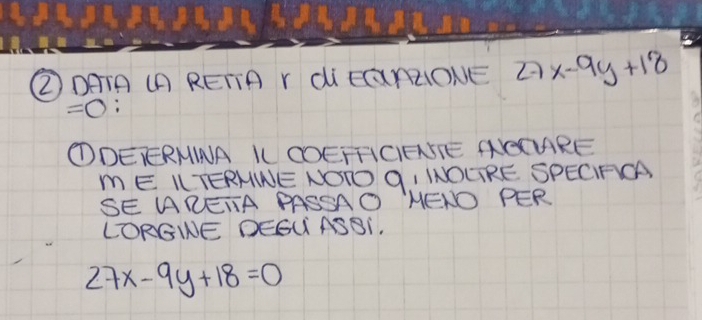 ② DATA LA RETTA r di EQUAZIONE 27x-9y+18
=0:
① DETERMINA IL COEFFICIENTE ANGOLARE
m E IL TERMINE NOTO q, INOLTRE SPECIFICA
SE LA RETTA PASSA O MENO PER
L'ORIGINE DEGLI ASSI.
27x-9y+18=0